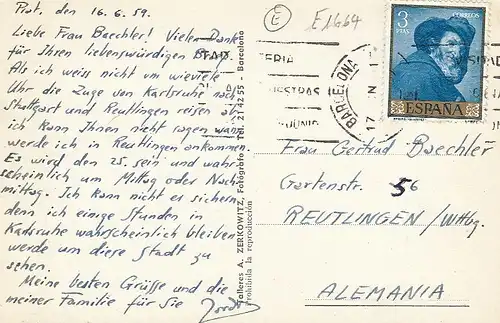 Prat, den 16.6.59.
Liebe Frau Baechler! Vielen Dank
für Ihren liebenswürdigen Brief.
Als ich weiss nicht um wieviele
Uhr die Züge von Karlsruhe nach
Stuttgart und Reutlingen reisen ab,
ich kann Ihnen nicht sagen wann
werde ich in Reutlingen ankommen.
Es wird den 25. sein und wahr-
scheinlich um Mittag oder Nach-
mittag. Ich kann nicht es sichern
denn ich einige Stunden in
Karlsruhe wahrscheinlich bleiben
werde um diese Stadt zu
sehen.
Meine besten Grüsse und die
meiner Familie für Sie
Talleres A. ZERKOWITZ, Fotógrafo - Tel. 21 42 55 - Barcelona
Prohibida la reproducción
E E1664
FERIA
MUESTRAS
JUNIO
BARCELONA
17
3
PTAS
CORREOS
ESPAÑA
Frau Gertrud Baechler
Gartenstr. 56
REUTLINGEN / Wttbg.
ALEMANIA